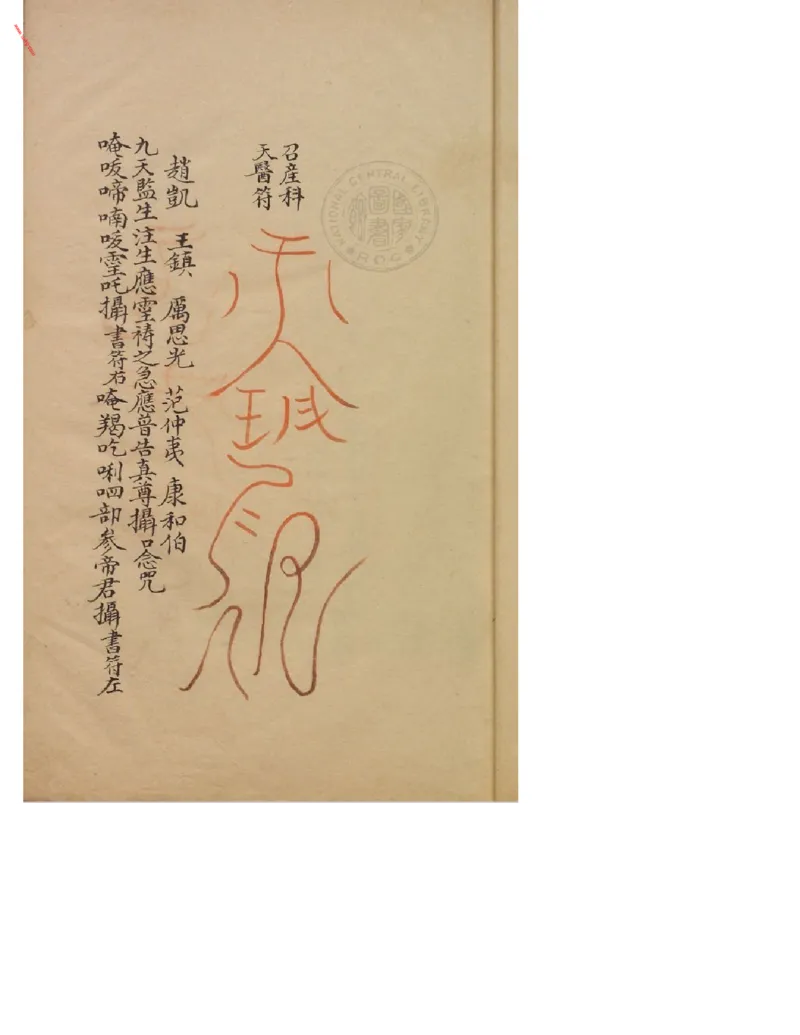 召産科
天醫符
趙凱 王鎮 厲思光 范仲夷 康和伯
九天監生注生應霊禱之急應普告真尊攝口念咒
唵㗚啼喃㗚霊吒攝書符右唵羯吃唎呬部參帝君攝書符左
NATIONAL CENTRAL LIBRARY
ROC
國家圖書館